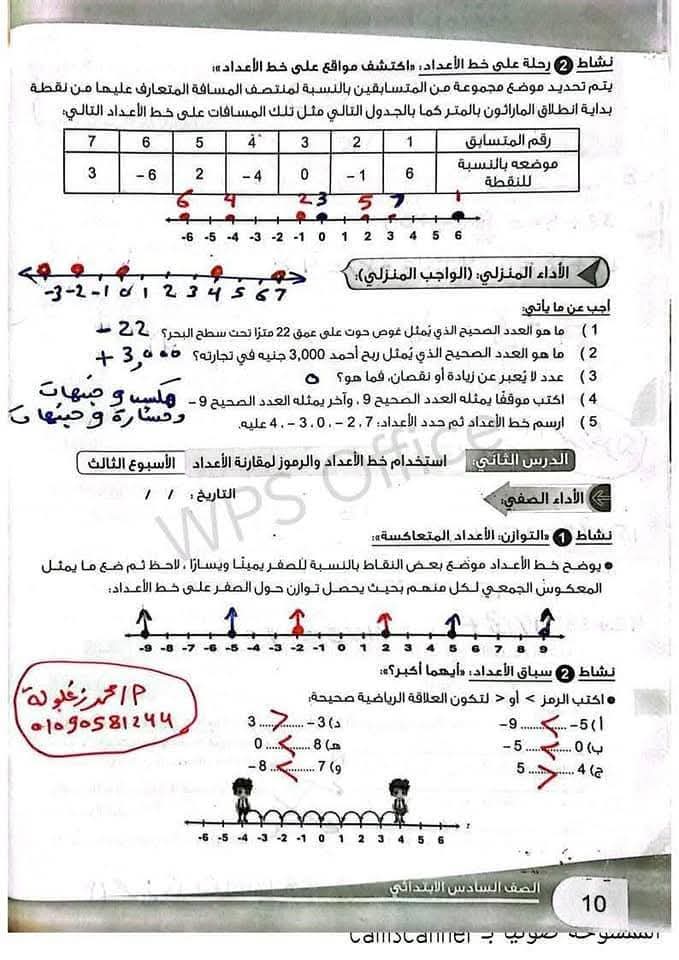 نشاط 2 رحلة على خط الأعداد: «اكتشف مواقع على خط الأعداد»:
يتم تحديد موضع مجموعة من المتسابقين بالنسبة لمنتصف المسافة المتعارف عليها من نقطة
بداية إنطلاق الماراثون بالمتر كما بالجدول التالي مثل تلك المسافات على خط الأعداد التالي:
رقم المتسابق 1 2 3 4 5 6 7
موضعه بالنسبة للنقطة 6 1 – 0 4 – 2 6 – 3
6 4 2 3 5 7 1
-6 -5 -4 -3 -2 -1 0 1 2 3 4 5 6
الأداء المنزلي: (الواجب المنزلي):
-3 -2 -1 0 1 2 3 4 5 6 7
أجب عن ما يأتي:
1 ) ما هو العدد الصحيح الذي يُمثل غوص حوت على عمق 22 مترًا تحت سطح البحر؟ - 22
2 ) ما هو العدد الصحيح الذي يُمثل ربح أحمد 3,000 جنيه في تجارته؟ + 3,000
3 ) عدد لا يُعبر عن زيادة أو نقصان، فما هو؟ 0
4 ) اكتب موقفًا يمثله العدد الصحيح 9 ، وآخر يمثله العدد الصحيح 9 – مكسب 9 جنيهات
وخسارة 9 جنيهات
5 ) ارسم خط الأعداد ثم حدد الأعداد: 7 ، 2 – ، 0 ، 3 – ، 4 عليه.
الدرس الثاني: استخدام خط الأعداد والرموز لمقارنة الأعداد الأسبوع الثالث
الأداء الصفي: التاريخ : / /
نشاط 1 «التوازن: الأعداد المتعاكسة»:
• يوضح خط الأعداد موضع بعض النقاط بالنسبة للصفر يمينًا ويسارًا ، لاحظ ثم ضع ما يمثل
المعكوس الجمعي لكل منهم بحيث يحصل توازن حول الصفر على خط الأعداد:
-9 -8 -7 -6 -5 -4 -3 -2 -1 0 1 2 3 4 5 6 7 8 9
نشاط 2 سباق الأعداد: «أيهما أكبر؟»:
• اكتب الرمز > أو < لتكون العلاقة الرياضية صحيحة:
أ ) 5 – ....<.... 9 – د ) 3 – ....>.... 3
ب ) 0 ....<.... 5 – هـ ) 8 ....<.... 0
ج ) 4 ....>.... 5 و ) 7 ....<.... 8 –
م/ محمد زغلولة
01090581244
-6 -5 -4 -3 -2 -1 0 1 2 3 4 5 6
الصف السادس الابتدائي
10
الممسوحة ضوئيا بـ CamScanner
WPS Office